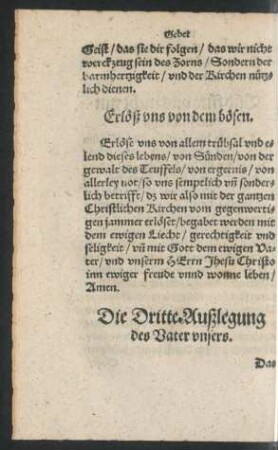 Gebet
Geist / das sie dir folgen / das wir nicht
werckzeug sein des Zorns / Sondern der
barmhertzigkeit / vnd der Kirchen nütz-
lich dienen.
Erlöß vns von dem bösen.
Erlöse vns von allem trübsal vnd e-
lend dieses lebens / von Sünden / von der
gewalt des Teuffels / von ergernis / von
allerley not / so vns semptlich vn̄ sonder-
lich betrifft / dz wir also mit der gantzen
Christlichen Kirchen vom gegenwerti-
gen jammer erlöset / begabet werden mit
dem ewigen Liecht / gerechtigkeit vnd
seligkeit / vn̄ mit Gott dem ewigen Va-
ter / vnd vnserm HErrn Jhesu Christo
inn ewiger freude vnnd wonne leben /
Amen.
Die Dritte Außlegung
des Vater vnsers.
Das